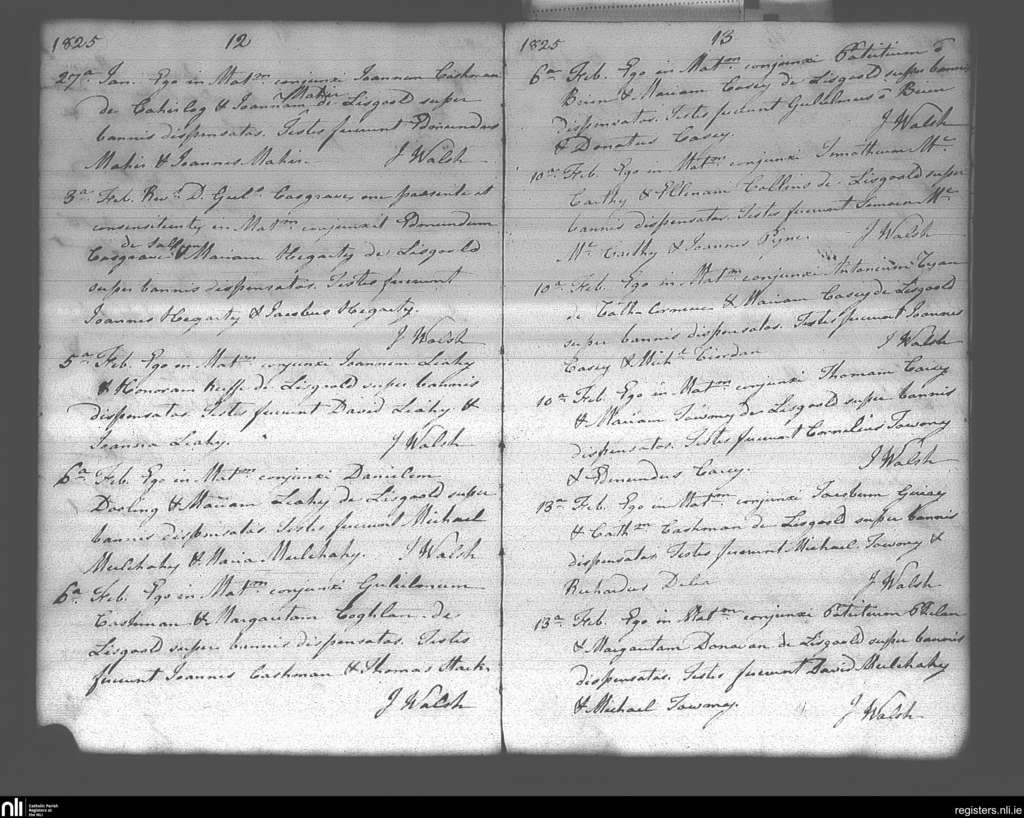 1825 12
27a Jan. Ego in Matm conjunxi Joannem Cashman
de Caherlog & Joannam Maher de Lisgoold super
bannis dispensatas. Testes fuerunt Edmundus
Maher & Joannes Maher. J Walsh
3a Feb. Revd D. Gul Cosgrave me presente at
consentiente in Matm conjunxit Edmundum
Cosgrave de & Mariam Hegarty de Lisgoold
super bannis dispensatas. Testes fuerunt
Joannes Hegarty & Jacobus Hegarty.
J Walsh
5a Feb. Ego in Matm conjunxi Joannem Leahy
& Honoram Keiffe de Lisgoold super bannis
dispensatas. Testes fuerunt David Leahy &
Joanna Leahy. J Walsh
6a Feb. Ego in Matm conjunxi Danielem
Dorling & Mariam Leahy de Lisgoold super
bannis dispensatis. Testes fuerunt Michael
Mulchahy & Maria Mulchahy. J Walsh
6a Feb. Ego in Matm conjunxi Gulielmum
Cashman & Margaritam Coghlan de
Lisgoold super bannis dispensatas. Testes
fuerunt Joannes Cashman & Thomas Stack.
J Walsh
1825 13
6a Feb. Ego in Matm conjunxi Patritium ō
Brien & Mariam Casey de Lisgoold super bannis
dispensatas. Testes fuerunt Gulielmus ō Brien
& Donatus Casey. J Walsh
10a Feb. Ego in Matm conjunxi Mc
Carthy & Ellenam Collins de Lisgoold super
bannis dispensatas. Testes fuerunt Mc
Mc Carthy & Joannes Pyne. J Walsh
10a Feb. Ego in Matm conjunxi Antonium Ryan
de & Mariam Casey de Lisgoold
super bannis dispensatas. Testes fuerunt Joannes
Casey & Michl Riordan J Walsh
10a Feb. Ego in Matm conjunxi Thomam Carey
& Mariam Towmy de Lisgoold super bannis
dispensatas. Testes fuerunt Cornelius Towomy
& Edmundus Carey. J Walsh
13a Feb. Ego in Matm conjunxi Jacobum Geiray
& Cathm Cashman de Lisgoold super bannis
dispensatas. Testes fuerunt Michael Towomy &
Richardus Delea J Walsh
13a Feb. Ego in Matm conjunxi Patritium Phelan
& Margaritam Donovan de Lisgoold super bannis
dispensatas. Testes fuerunt David Mulchahy
& Michael Towmy. J Walsh
nli Catholic Parish
Registers at
the NLI
registers.nli.ie